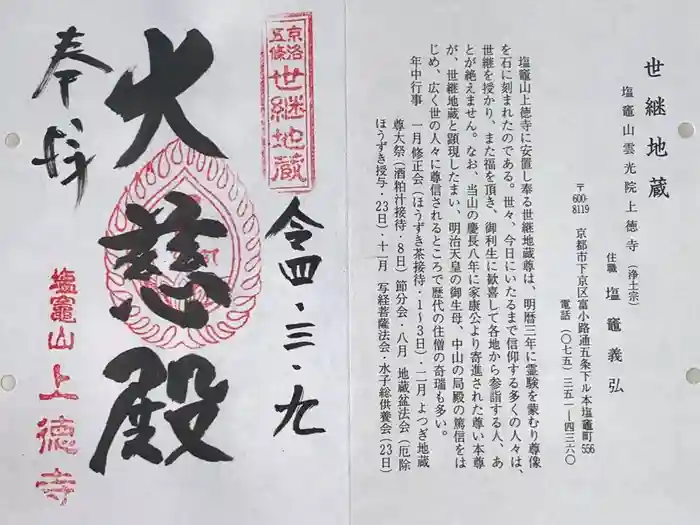 世継地蔵
塩竈山雲光院上徳寺（浄土宗）
住職 塩竈義弘
〒600-8119 京都市下京区富小路通五条下ル本塩竈町556
電話（〇七五）三五一ー四三六〇
塩竈山上徳寺に安置し奉る世継地蔵尊は、明暦三年に霊験を蒙むり尊像
を石に刻まれたのである。世々、今日にいたるまで信仰する多くの人々は、
世継を授かり、また福を頂き、御利生に歓喜して各地から参詣する人、あ
とが絶えません。なお、当山の慶長八年に家康公より寄進された尊い本尊
が、世継地蔵と顕現したまい、明治天皇の御生母、中山の局殿の篤信をは
じめ、広く世の人々に尊信されるところで歴代の住僧の奇瑞も多い。
年中行事 一月修正会（ほうずき茶接待・1〜3日）・二月 よつぎ地蔵
尊大祭（酒粕汁接待・8日）節分会・八月 地蔵盆法会（厄除
ほうずき授与・23日）・十一月 写経菩薩法会・水子総供養会（23日）
京洛五條
世継地蔵
令四・三・九
大慈殿
奉拝
塩竈山上徳寺